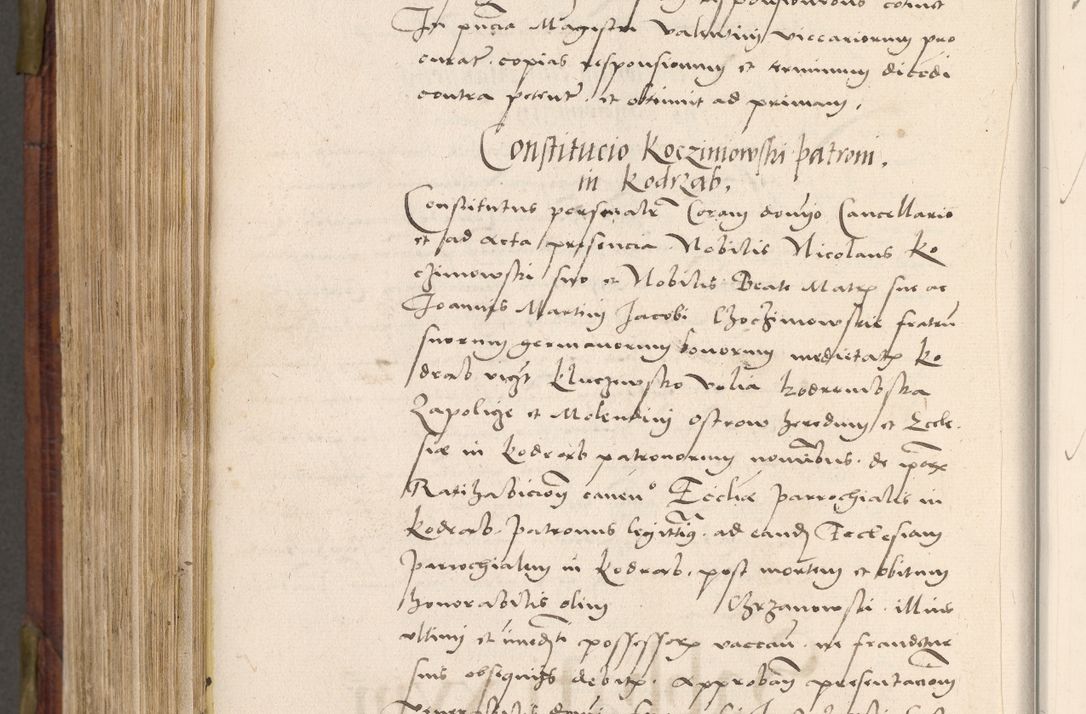 In pncia Magistri Valentini viccariorum pro
curator copias responsionum et terminum dicendi
contra petent et obtinuit ad primam.
Constitucio Koczimowski patroni.
in Kodrzab.
Constitutus personaliter Coram domino Cancellario
et ad acta presencia Nobilis Nicolaus Ko
czimowski suo et Nobilis Beate Matris sue ac
Joannis Martini Jacobi Choczimowskie fratrum
suorum germanorum bonorum medietatis Ko
drab vigt Kluczewsko Volia Kodrembska
Zapolicze et Molendini Ostrow heredum et Eccle
sie in Kodrab patronorum nominibus de quorum
Ratihabicion caven Ecclie parrochialis in
Kodrab Patronus legittimus ad eandem Ecclesiam
parrochialem in Kodrab post mortem et obitum
honorabilis olim Chrzanowski illius
ultimi et immediate possessoris vacan ne fraudetur
suis obsequiis debitis Approbam presentacionem